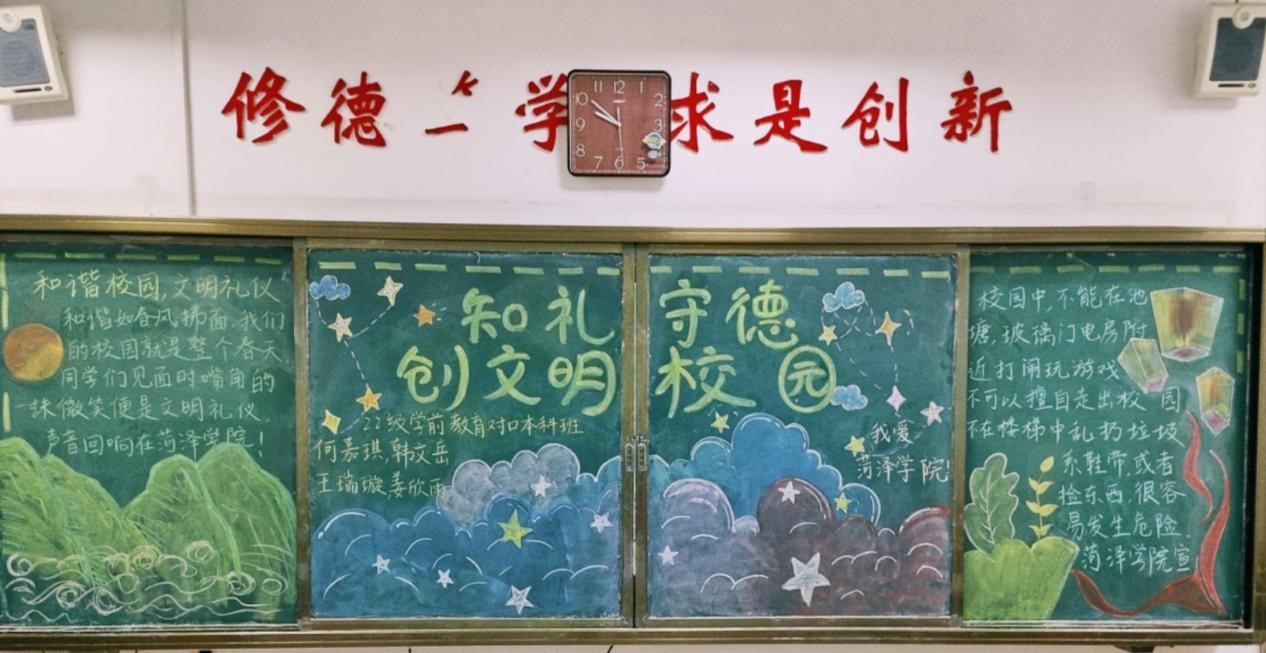 修德 学 求是创新
11 12 1
10 2
9 3
8
7 6 5
和谐校园,文明礼仪
和谐如春风拂面,我们
的校园就是整个春天
同学们见面时嘴角的
一抹微笑便是文明礼仪,
声音回响在菏泽学院!
知礼 守德
创文明校园
22级学前教育对口本科班
何嘉琪,韩文岳
王瑞璇,姜欣雨
我爱
菏泽学院!
校园中,不能在池
塘,玻璃门电房附
近打闹玩游戏
不可以擅自走出校园
不在楼梯中乱扔垃圾
系鞋带,或者
捡东西,很容
易发生危险.
菏泽学院宣